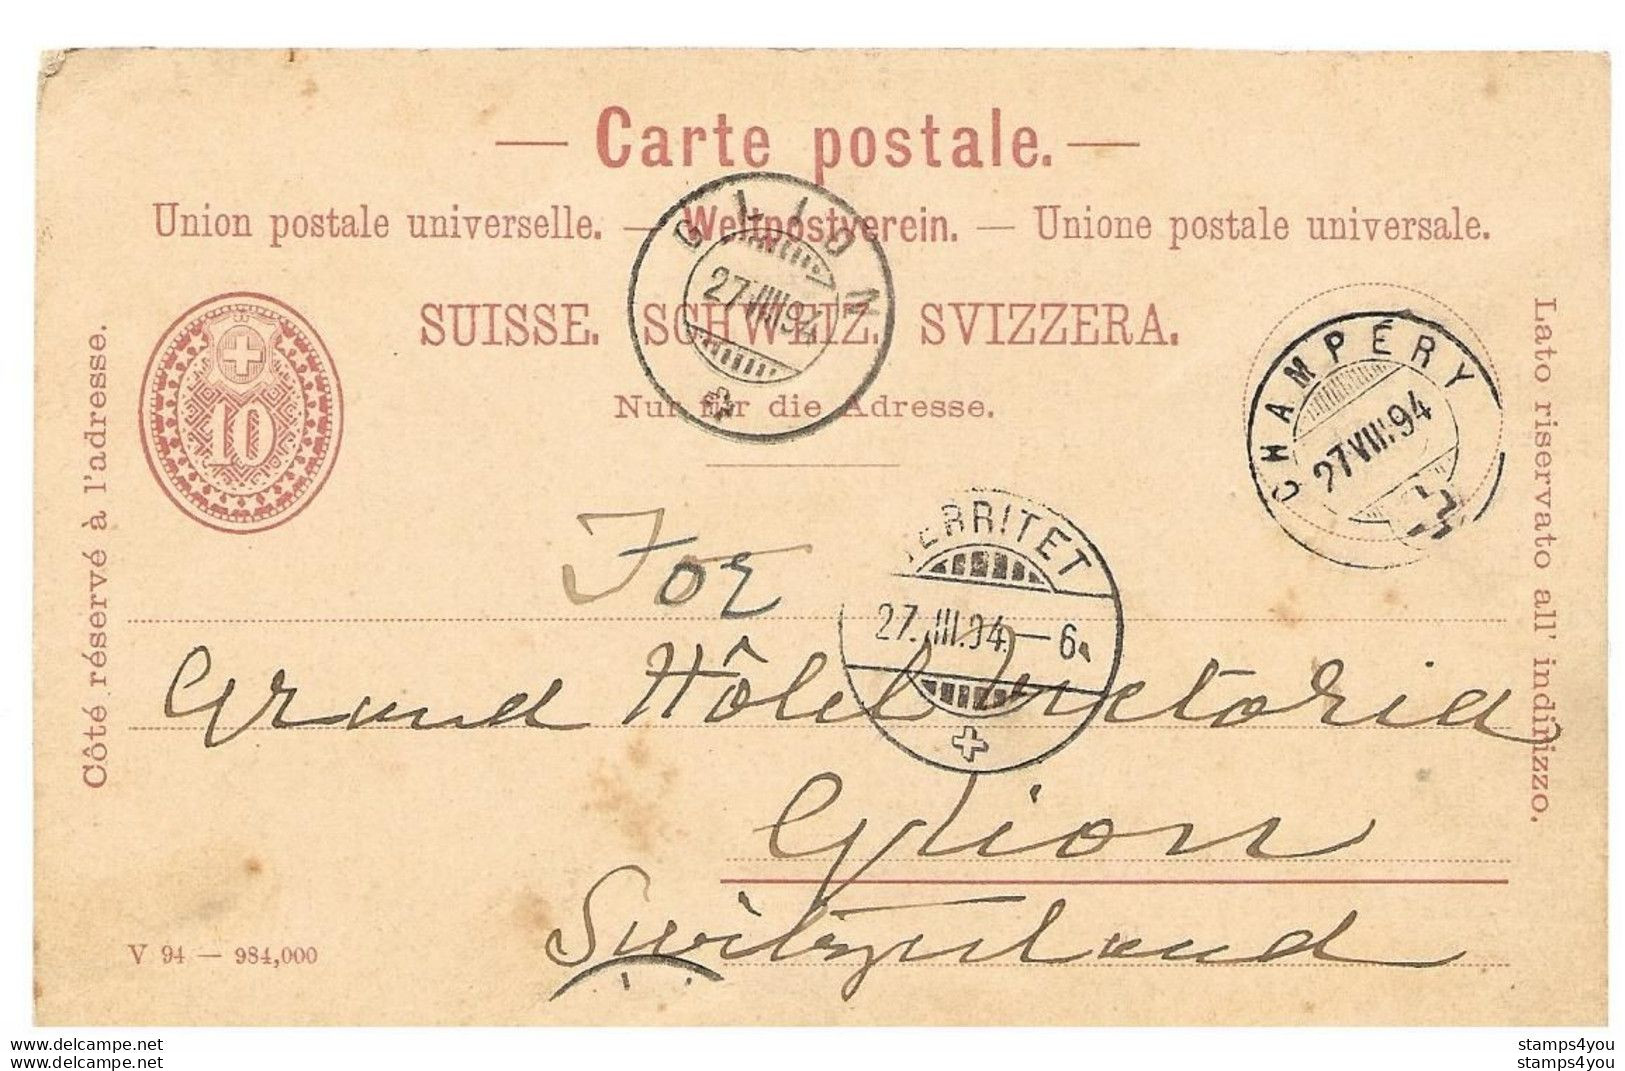 — Carte postale. —
Union postale universelle. — Weltpostverein. — Unione postale universale.
SUISSE. SCHWEIZ. SVIZZERA.
Nur für die Adresse.
Côté réservé à l'adresse.
Lato riservato all' indirizzo.
10
GLION
27 VIII 94
CHAMPÉRY
27 VIII.94
TERRITET
27.VIII.94.—6
For
Grand Hôtel Victoria
Glion
Switzerland
V 94 — 984,000
www.delcampe.net
www.delcampe.net
stamps4you
stamps4you